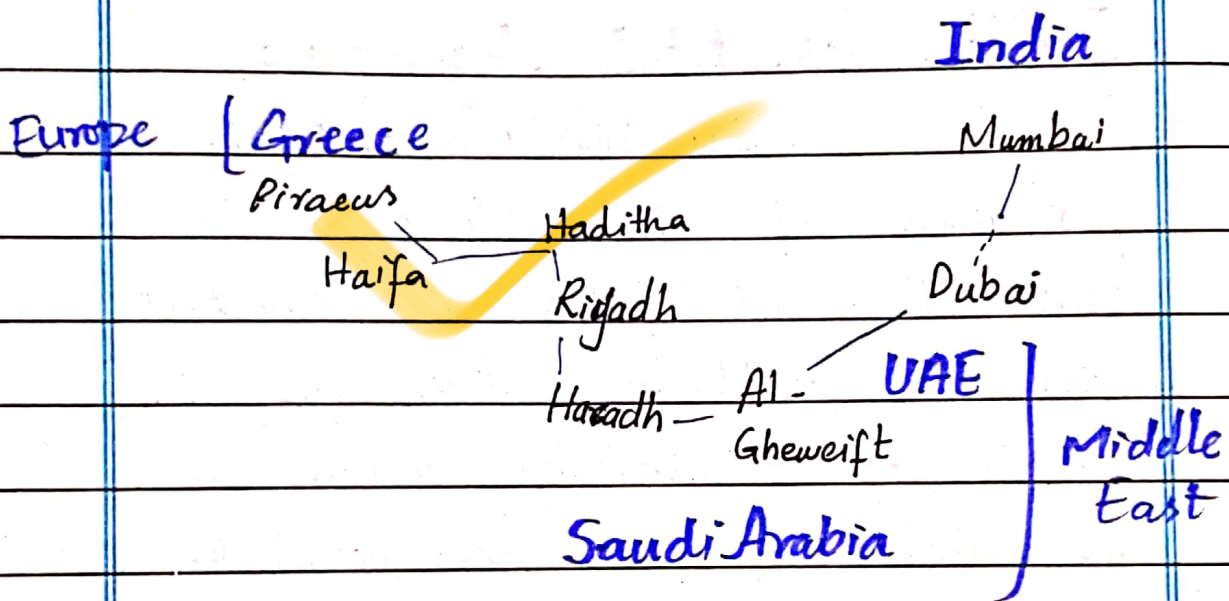 India
Europe [Greece
Mumbai
Piraeus
Haditha
Haifa
Dubai
Riyadh
UAE
Haradh — Al-
Gheweift
Middle
East
Saudi Arabia